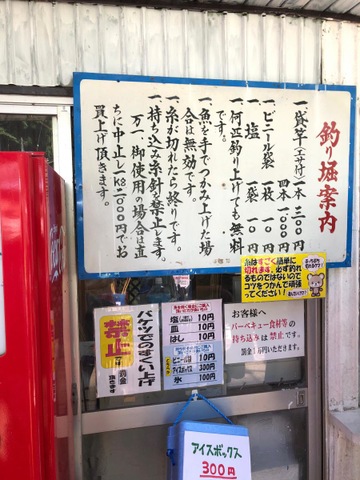 釣り堀案内
一、貸竿(エサ付)一本 三〇〇円
四本 一、〇〇〇円
一、ビニール袋 一枚 一〇円
一、塩 一袋 一〇円
一、何匹釣り上げても無料
です。
一、魚を手でつかみ上げた場
合は無効です。
一、糸が切れたら終りです。
一、持ち込み糸針禁止します。
万一、御使用の場合は直
ちに中止し1kg二、〇〇〇円でお
買上げ頂きます。
糸はすごく簡単に
切れます。必ず釣れ
るものではないので
コツをつかんで頑張
ってください!
バケツでのすくい上げ
禁止
罰金
頂きます
塩 10円
皿 10円
はし 10円
ビニール袋 10円
300円
氷 100円
お客様へ
バーベキュー食材等の
持ち込みは禁止です。
罰金1万円いただきます。
アイスボックス
300円